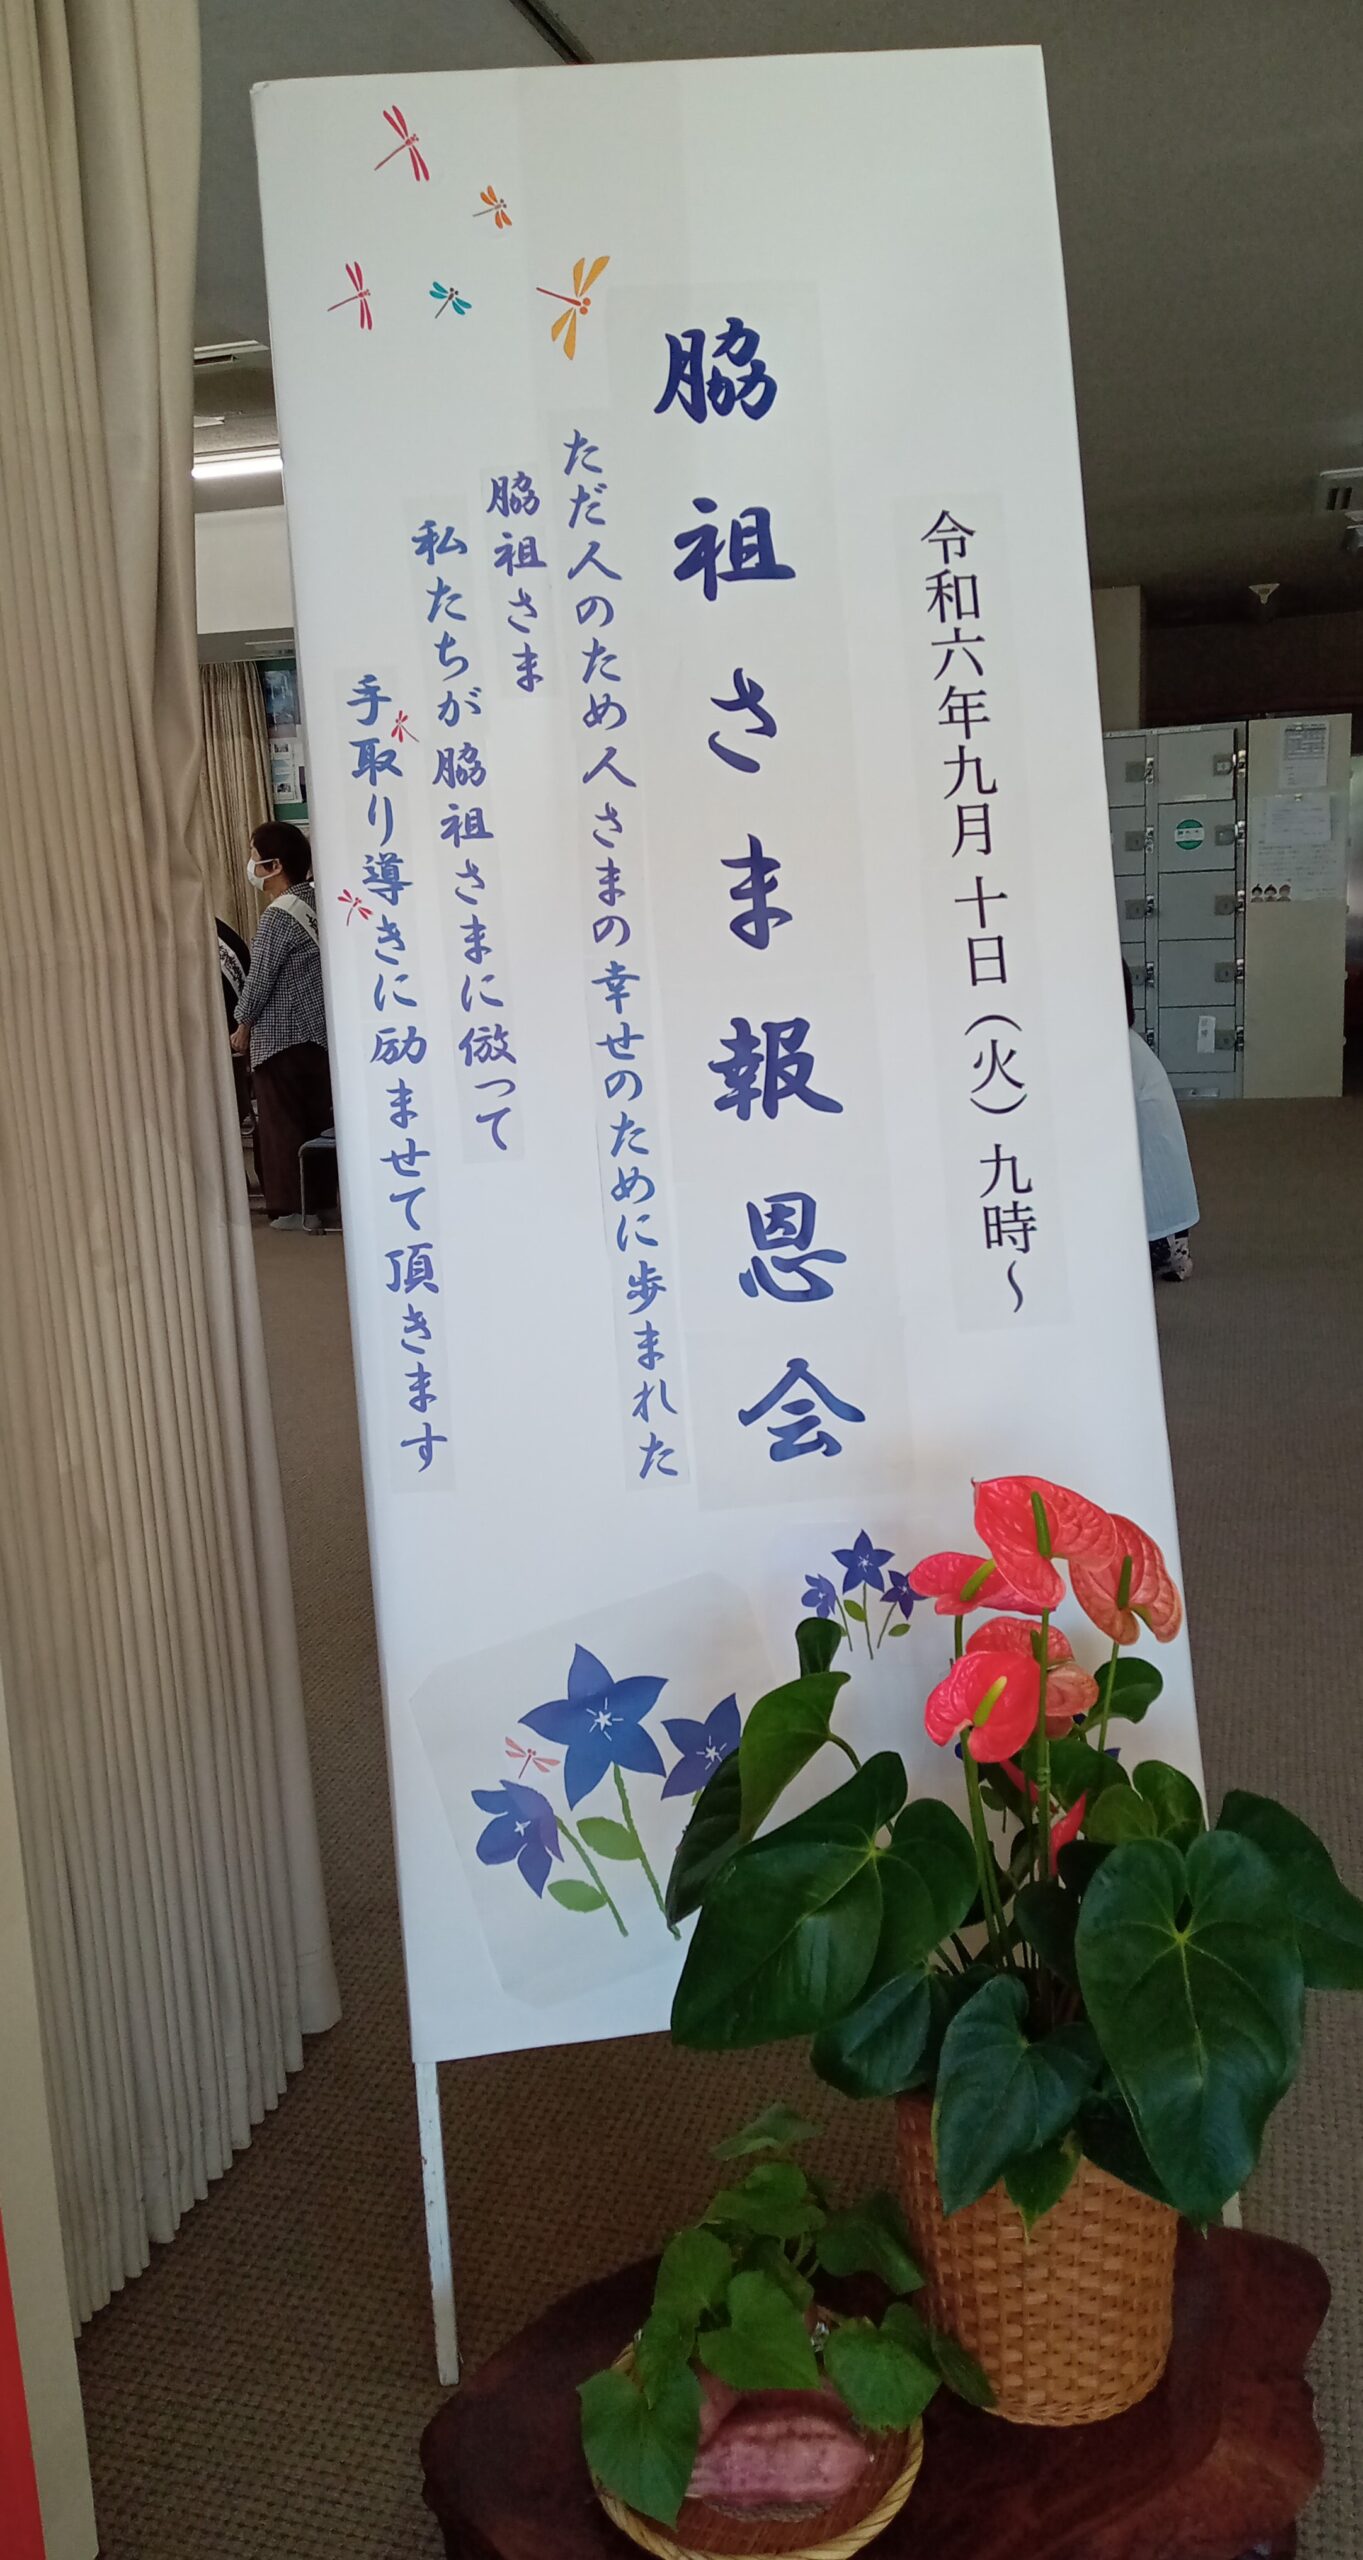 令和六年九月十日（火）九時〜
脇祖さま報恩会
ただ人のため人さまの幸せのために歩まれた
脇祖さま
私たちが脇祖さまに倣って
手取り導きに励ませて頂きます